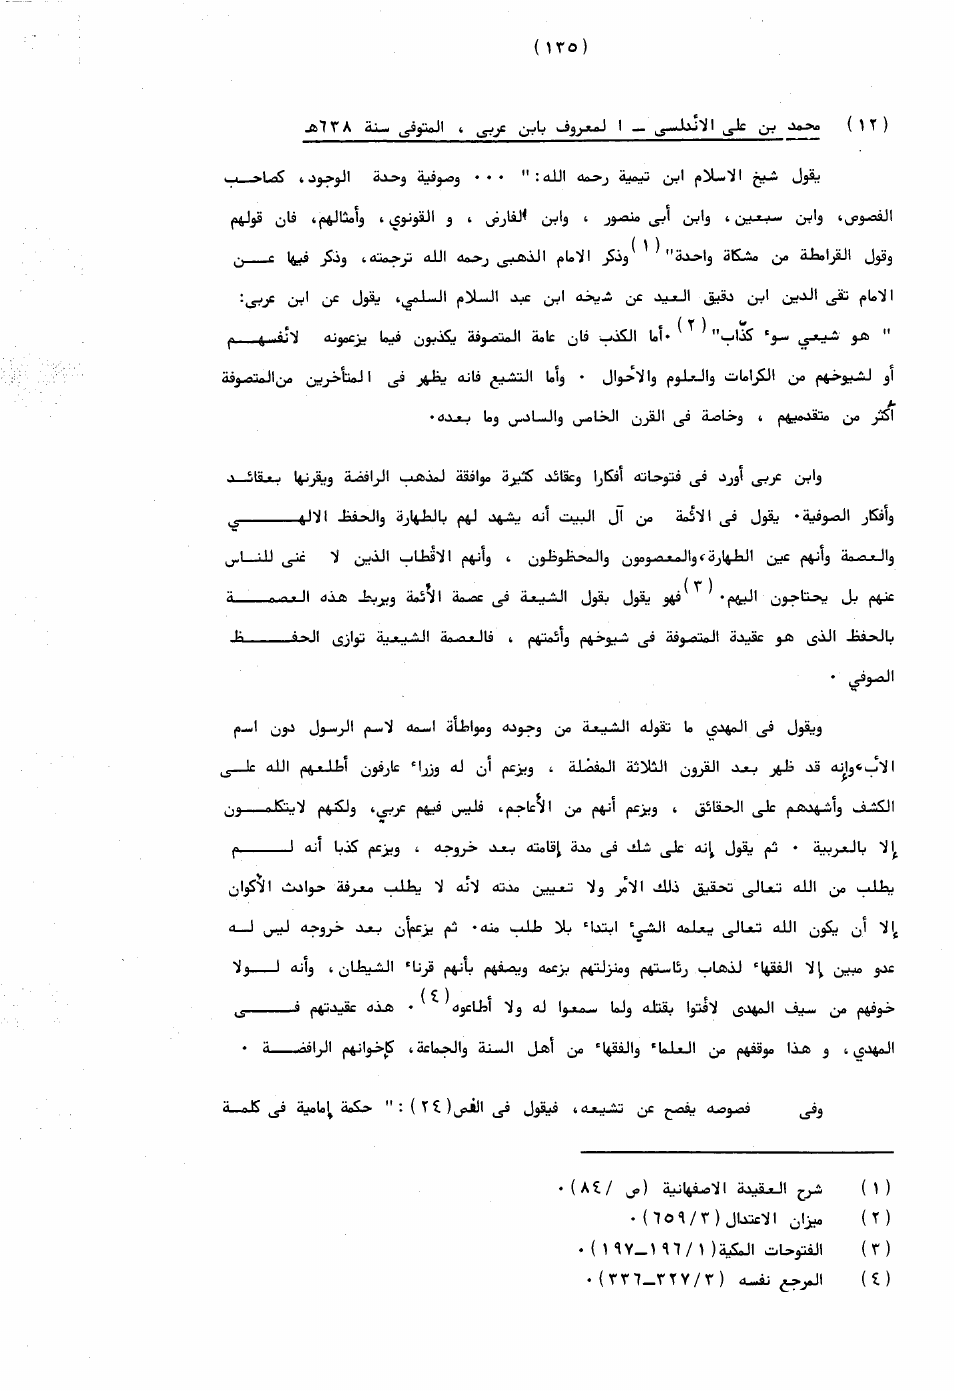 (١٣٥)
(١٢) محمد بن على الأندلسى ــ المعروف بابن عربى ، المتوفى سنة ٦٣٨هـ
يقول شيخ الاسلام ابن تيمية رحمه الله: " ٠٠٠ وصوفية وحدة الوجود، كصاحب
الفصوص، وابن سبعين، وابن أبى منصور ، وابن الفارض ، و القونوي، وأمثالهم، فان قولهم
وقول القرامطة من مشكاة واحدة"(١) وذكر الامام الذهبى رحمه الله ترجمته، وذكر فيها عن
الامام تقى الدين ابن دقيق العيد عن شيخه ابن عبد السلام السلمي، يقول عن ابن عربى:
" هو شيعي سوء كذّاب"(٢) ٠أما الكذب فان عامة المتصوفة يكذبون فيما يزعمونه لأنفسهم
أو لشيوخهم من الكرامات والعلوم والأحوال ٠ وأما التشيع فانه يظهر فى المتأخرين من المتصوفة
أكثر من متقدميهم ، وخاصة فى القرن الخامس والسادس وما بعده٠
وابن عربى أورد فى فتوحاته أفكارا وعقائد كثيرة موافقة لمذهب الرافضة ويقرنها بعقائد
وأفكار الصوفية٠ يقول فى الأئمة من آل البيت أنه يشهد لهم بالطهارة والحفظ الالهي
والعصمة وأنهم عين الطهارة، والمعصومون والمحظوظون ، وأنهم الأقطاب الذين لا غنى للناس
عنهم بل يحتاجون اليهم٠(٣) فهو يقول بقول الشيعة فى عصمة الأئمة ويربط هذه العصمة
بالحفظ الذى هو عقيدة المتصوفة فى شيوخهم وأئمتهم ، فالعصمة الشيعية توازى الحفظ
الصوفي ٠
ويقول فى المهدي ما تقوله الشيعة من وجوده ومواطأة اسمه لاسم الرسول دون اسم
الأب، وإنه قد ظهر بعد القرون الثلاثة المفضّلة ، ويزعم أن له وزراء عارفون أطلعهم الله على
الكشف وأشهدهم على الحقائق ، ويزعم أنهم من الأعاجم، فليس فيهم عربي، ولكنهم لايتكلمون
إلا بالعربية ٠ ثم يقول إنه على شك فى مدة إقامته بعد خروجه ، ويزعم كذبا أنه لم
يطلب من الله تعالى تحقيق ذلك الأمر ولا تعيين مدته لأنه لا يطلب معرفة حوادث الأكوان
إلا أن يكون الله تعالى يعلمه الشيء ابتداء بلا طلب منه٠ ثم يزعم أن بعد خروجه ليس له
عدو مبين إلا الفقهاء لذهاب رئاستهم ومنزلتهم بزعمه ويصفهم بأنهم قرناء الشيطان ، وأنه لولا
خوفهم من سيف المهدى لأفتوا بقتله ولما سمعوا له ولا أطاعوه(٤) ٠ هذه عقيدتهم فى
المهدي، و هذا موقفهم من العلماء والفقهاء من أهل السنة والجماعة، كإخوانهم الرافضة ٠
وفى فصوصه يفصح عن تشيعه، فيقول فى الفص(٢٤): " حكمة إمامية فى كلمة
(١) شرح العقيدة الاصفهانية (ص /٨٤)٠
(٢) ميزان الاعتدال (٣/ ٦٥٩)٠
(٣) الفتوحات المكية(١/ ١٩٦ــ١٩٧)٠
(٤) المرجع نفسه (٣/ ٣٢٧ــ٣٣٦)٠